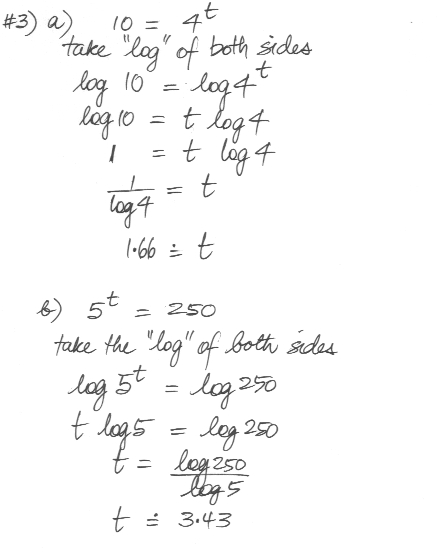 #3) a) 10 = 4^t
take "log" of both sides
log 10 = log 4^t
log 10 = t log 4
1 = t log 4
1/log 4 = t
1.66 ≐ t
b) 5^t = 250
take the "log" of both sides
log 5^t = log 250
t log 5 = log 250
t = log 250/log 5
t ≐ 3.43